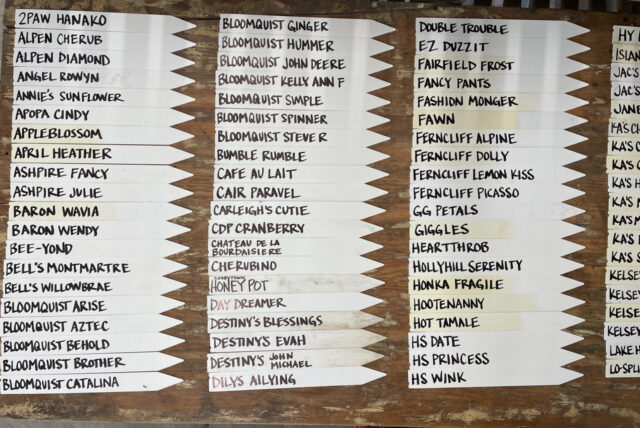 2PAW HANAKO
ALPEN CHERUB
ALPEN DIAMOND
ANGEL ROWYN
ANNIE'S SUNFLOWER
APOPA CINDY
APPLEBLOSSOM
APRIL HEATHER
ASHPIRE FANCY
ASHPIRE JULIE
BARON WAVIA
BARON WENDY
BEE-YOND
BELL'S MONTMARTRE
BELL'S WILLOWBRAE
BLOOMQUIST ARISE
BLOOMQUIST AZTEC
BLOOMQUIST BEHOLD
BLOOMQUIST BROTHER
BLOOMQUIST CATALINA
BLOOMQUIST GINGER
BLOOMQUIST HUMMER
BLOOMQUIST JOHN DEERE
BLOOMQUIST KELLY ANN F
BLOOMQUIST SIMPLE
BLOOMQUIST SPINNER
BLOOMQUIST STEVE R
BUMBLE RUMBLE
CAFE AU LAIT
CAIR PARAVEL
CARLEIGH'S CUTIE
CDP CRANBERRY
CHATEAU DE LA
BOURDAISIERE
CHERUBINO
HONEY POT
DAY DREAMER
DESTINY'S BLESSINGS
DESTINY'S EVAH
DESTINY'S JOHN
MICHAEL
DILYS AILYING
DOUBLE TROUBLE
EZ DUZZIT
FAIRFIELD FROST
FANCY PANTS
FASHION MONGER
FAWN
FERNCLIFF ALPINE
FERNCLIFF DOLLY
FERNCLIFF LEMON KISS
FERNCLIFF PICASSO
GG PETALS
GIGGLES
HEARTTHROB
HOLLYHILL SERENITY
HONKA FRAGILE
HOOTENANNY
HOT TAMALE
HS DATE
HS PRINCESS
HS WINK
HY
ISLAN
JAC'S
JAC'S
JANE
KA'S C
KA'S C
KA'S
KA'S
KA'S
KA'S
KA'S
KA'S
KELSE
KELSEY
KELSE
KELSEY
LAKE H
LO-SPLI